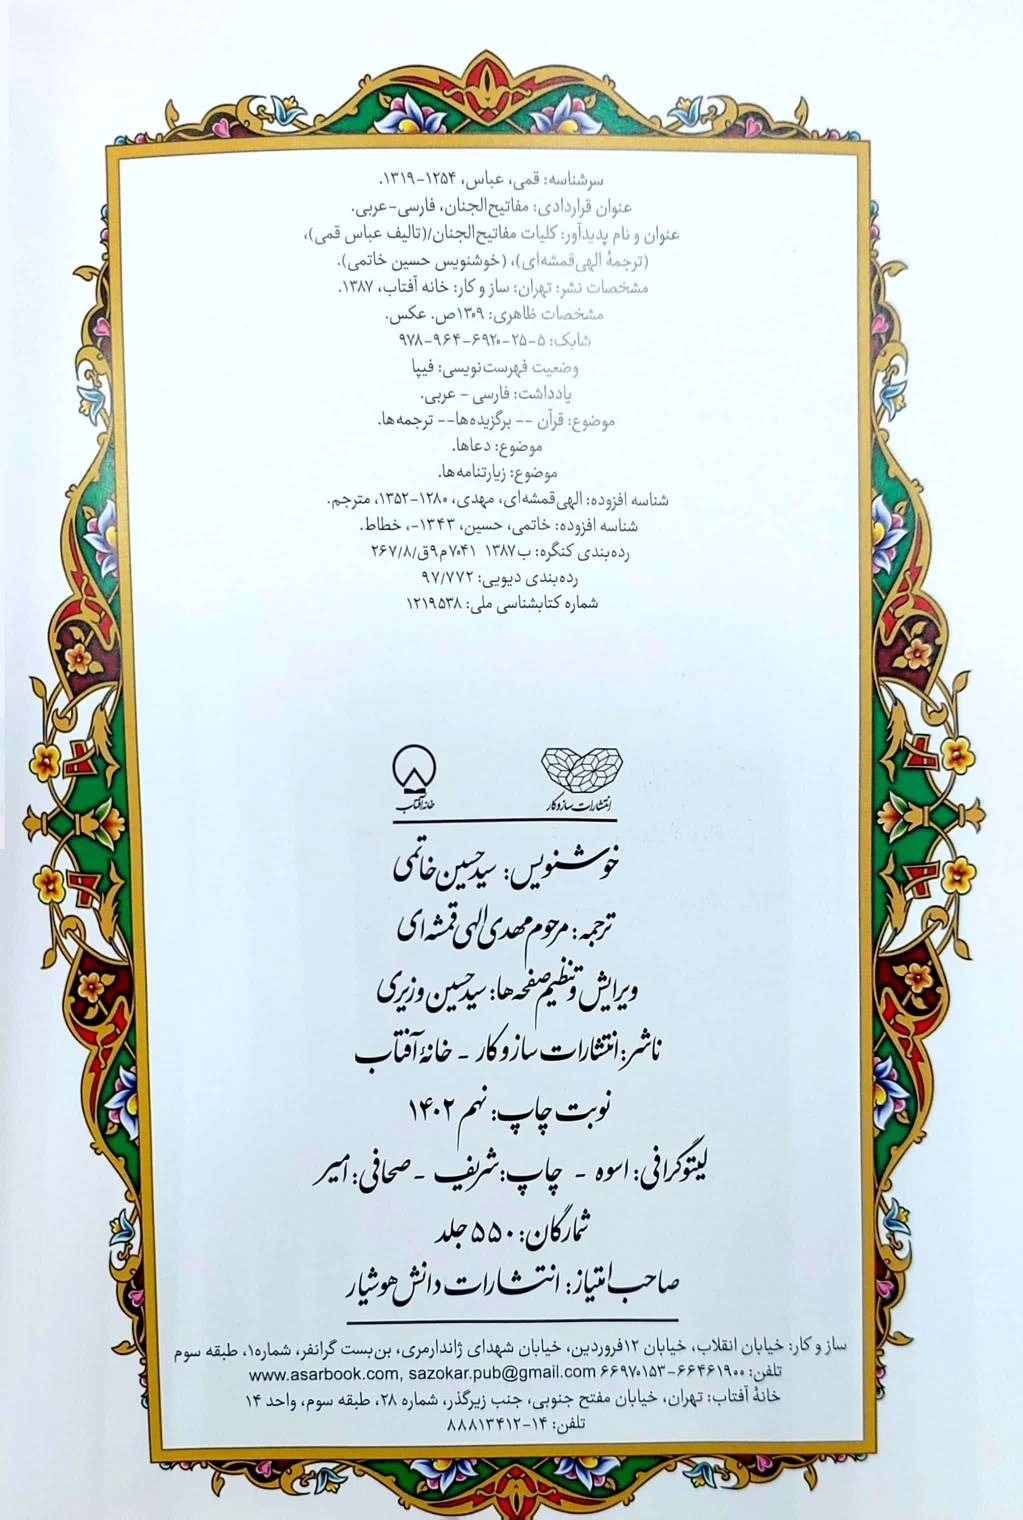 سرشناسه: قمی، عباس، ۱۲۵۴-۱۳۱۹.
عنوان قراردادی: مفاتیح‌الجنان، فارسی-عربی.
عنوان و نام پدیدآور: کلیات مفاتیح‌الجنان/(تالیف عباس قمی)،
(ترجمهٔ الهی‌قمشه‌ای)، (خوشنویس حسین خاتمی).
مشخصات نشر: تهران: ساز و کار: خانه آفتاب، ۱۳۸۷.
مشخصات ظاهری: ۱۳۰۹ص. عکس.
شابک: ۵-۲۵-۶۹۲۰-۹۶۴-۹۷۸
وضعیت فهرست‌نویسی: فیپا
یادداشت: فارسی - عربی.
موضوع: قرآن -- برگزیده‌ها-- ترجمه‌ها.
موضوع: دعاها.
موضوع: زیارتنامه‌ها.
شناسه افزوده: الهی‌قمشه‌ای، مهدی، ۱۲۸۰-۱۳۵۲، مترجم.
شناسه افزوده: خاتمی، حسین، ۱۳۴۳-، خطاط.
رده‌بندی کنگره: ب۱۳۸۷ ۷۰۴۱م۹ق/۲۶۷/۸
رده‌بندی دیویی: ۹۷/۷۷۲
شماره کتابشناسی ملی: ۱۲۱۹۵۳۸
انتشارات سازوکار خانه آفتاب
خوشنویس: سید حسین خاتمی
ترجمه: مرحوم مهدی الهی قمشه‌ای
ویرایش و تنظیم صفحه‌ها: سید حسین وزیری
ناشر: انتشارات سازوکار - خانهٔ آفتاب
نوبت چاپ: نهم ۱۴۰۲
لیتوگرافی: اسوه - چاپ: شریف - صحافی: امیر
شمارگان: ۵۵۰ جلد
صاحب امتیاز: انتشارات دانش هوشیار
ساز و کار: خیابان انقلاب، خیابان ۱۲فروردین، خیابان شهدای ژاندارمری، بن‌بست گرانفر، شماره۱، طبقه سوم
تلفن: ۶۶۴۶۱۹۰۰-۶۶۹۷۰۱۵۳ www.asarbook.com, sazokar.pub@gmail.com
خانهٔ آفتاب: تهران، خیابان مفتح جنوبی، جنب زیرگذر، شماره ۲۸، طبقه سوم، واحد ۱۴
تلفن: ۱۴-۸۸۸۱۳۴۱۲